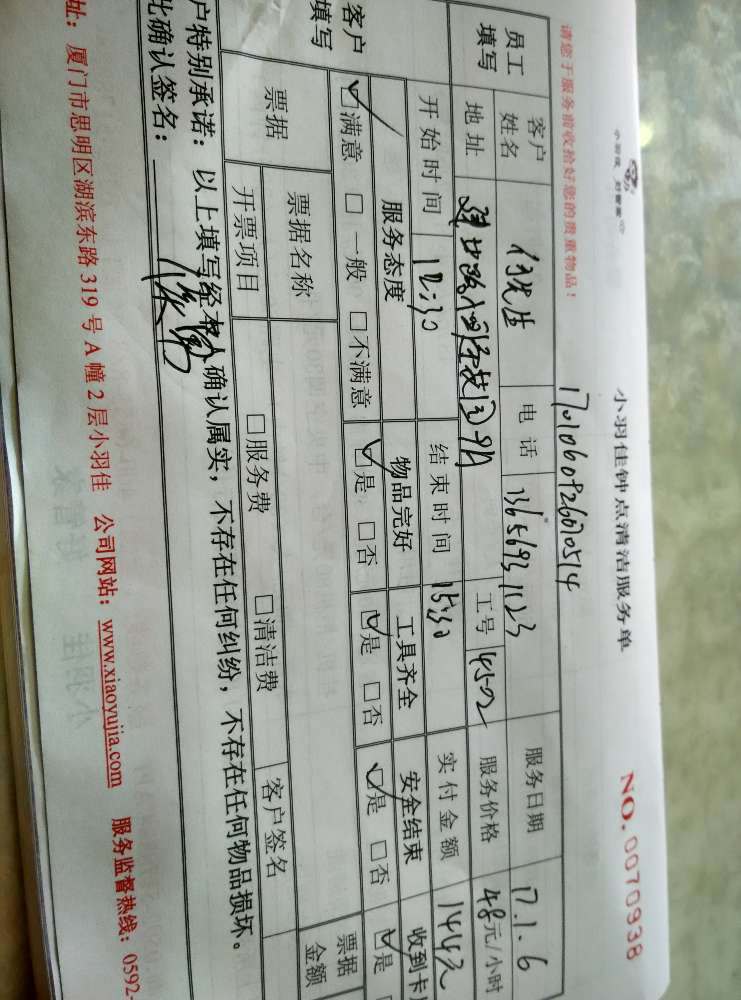 小羽佳钟点清洁服务单
NO.0070938
请您于服务前收拾好您的贵重物品！
1701060926670514
员工填写 客户姓名 先生 电话 13656931123 服务日期 17.1.6
地址 工号 4502 服务价格 48元/小时
开始时间 12:30 结束时间 15:30 实付金额 144元
客户填写 服务态度 物品完好 工具齐全 安全结束 收到卡
☑满意 □一般 □不满意 ☑是 □否 ☑是 □否 ☑是 □否 ☑是
票据 票据名称 票据金额
开票项目 □服务费 □清洁费 客户签名
户特别承诺：以上填写经本人确认属实，不存在任何纠纷，不存在任何物品损坏。
此确认签名：
址：厦门市思明区湖滨东路319号A幢2层小羽佳 公司网站：www.xiaoyujia.com 服务监督热线：0592-